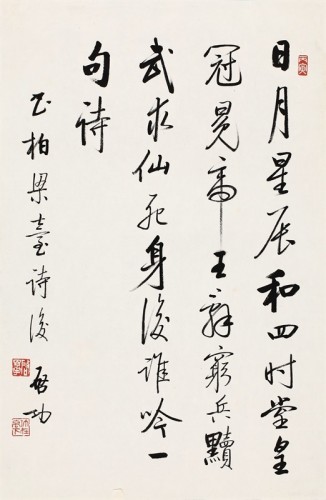 日月星辰和四时堂皇
冠冕帝王辞穷兵黩
武求仙死身后谁吟一
句诗
书柏梁臺诗後
启功